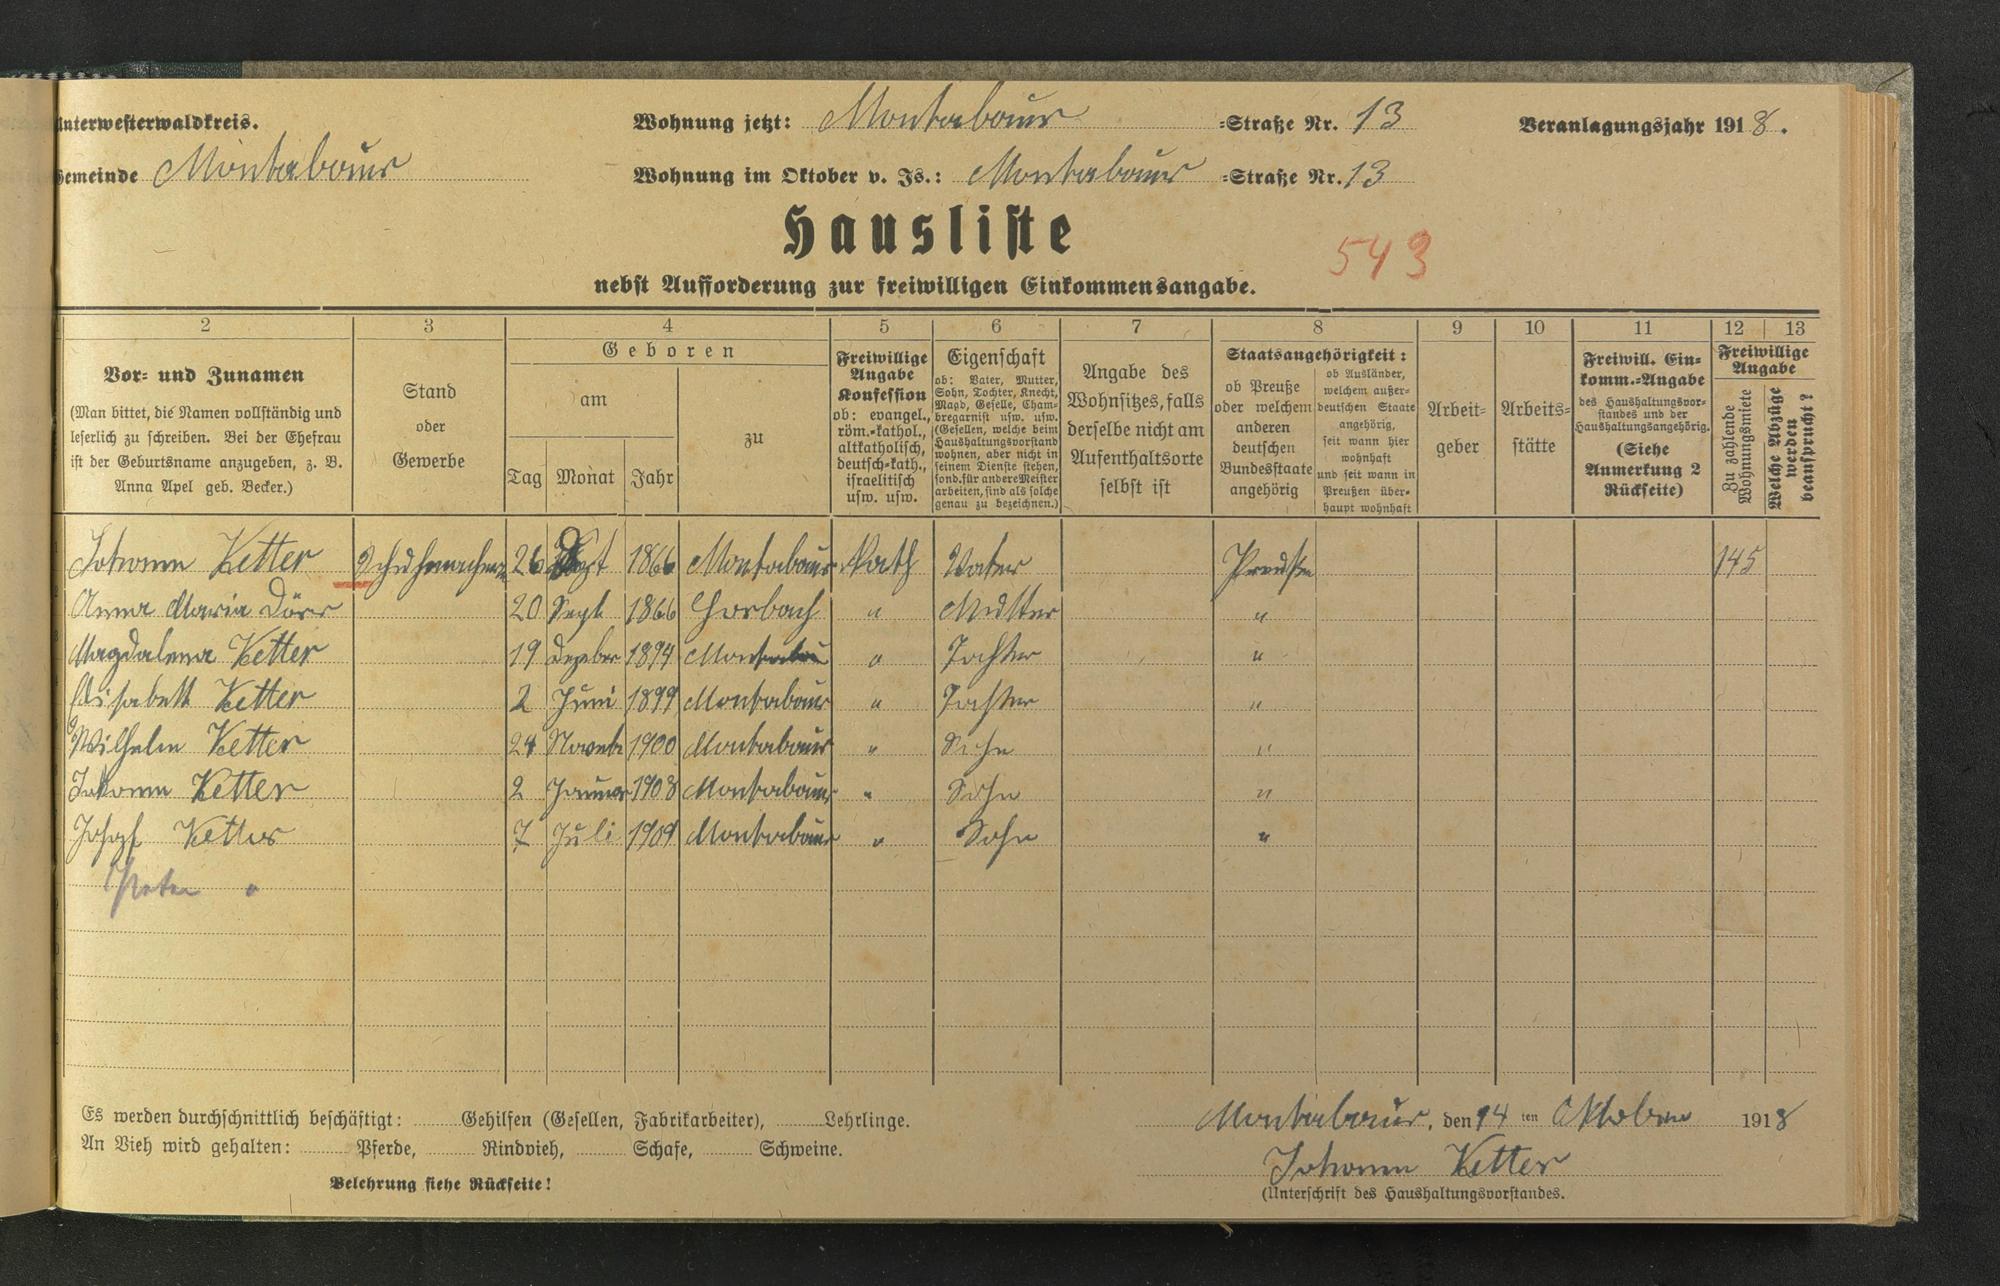 Unterwesterwaldkreis.
Wohnung jetzt: Montabaur =Straße Nr. 13
Veranlagungsjahr 1918.
Gemeinde Montabaur
Wohnung im Oktober v. Js.: Montabaur =Straße Nr. 13
Hausliste
543
nebst Aufforderung zur freiwilligen Einkommensangabe.
2 3 4 5 6 7 8 9 10 11 12 13
Vor- und Zunamen
(Man bittet, die Namen vollständig und
leserlich zu schreiben. Bei der Ehefrau
ist der Geburtsname anzugeben, z. B.
Anna Apel geb. Becker.)
Stand
oder
Gewerbe
Geboren
am
Tag Monat Jahr
zu
Freiwillige
Angabe
Konfession
ob: evangel.,
röm.-kathol.,
altkatholisch,
deutsch-kath.,
israelitisch
usw. usw.
Eigenschaft
ob: Vater, Mutter,
Sohn, Tochter, Knecht,
Magd, Geselle, Cham-
bregarnist usw. usw.
(Gesellen, welche beim
Haushaltungsvorstand
wohnen, aber nicht in
seinem Dienste stehen,
sond. für andere Meister
arbeiten, sind als solche
genau zu bezeichnen.)
Angabe des
Wohnsitzes, falls
derselbe nicht am
Aufenthaltsorte
selbst ist
Staatsangehörigkeit:
ob Preuße
oder welchem
anderen
deutschen
Bundesstaate
angehörig
ob Ausländer,
welchem außer-
deutschen Staate
angehörig,
seit wann hier
wohnhaft
und seit wann in
Preußen über-
haupt wohnhaft
Arbeit-
geber
Arbeits-
stätte
Freiwill. Ein-
komm.-Angabe
des Haushaltungsvor-
standes und der
Haushaltungsangehörig.
(Siehe
Anmerkung 2
Rückseite)
Freiwillige
Angabe
Zu zahlende
Wohnungsmiete
Welche Abzüge
werden
beansprucht?
Johann Ketter Schuhmacher 26 1866 Montabaur Kath Vater Preußen 145
Anna Maria Dörr 20 Sept 1866 Horbach " Mutter "
Magdalena Ketter 19 Dezeber 1894 Montabau " Tochter "
Elisabett Ketter 2 Juni 1899 Montabaur " Tochter "
Wilhelm Ketter 24 Novebr 1900 Montabaur " Sohn "
Johann Ketter 2 Januar 1908 Montabaur " Sohn "
Joseph Ketter 7 Juli 1909 Montabaur " Sohn "
Peter "
Es werden durchschnittlich beschäftigt: Gehilfen (Gesellen, Fabrikarbeiter), Lehrlinge.
An Vieh wird gehalten: Pferde, Rindvieh, Schafe, Schweine.
Belehrung siehe Rückseite!
Montabaur, den 14 ten Oktober 1918
Johann Ketter
(Unterschrift des Haushaltungsvorstandes.